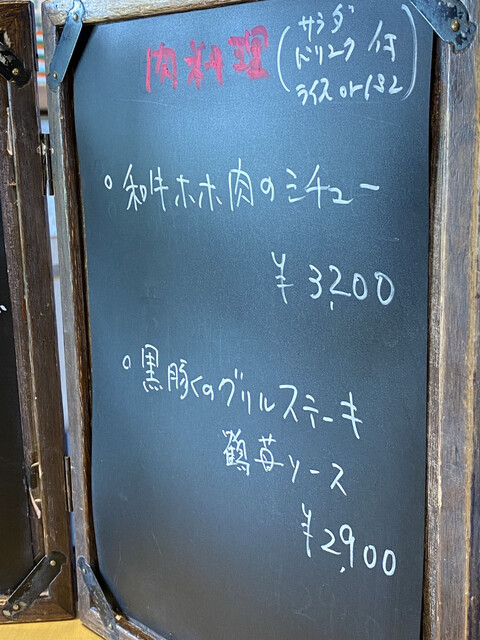 肉料理 (サラダ
ドリンク 付
ライス or パン)
○ 和牛ホホ肉のシチュー
¥3,200
○ 黒豚のグリルステーキ
鶴苺ソース
¥2,900